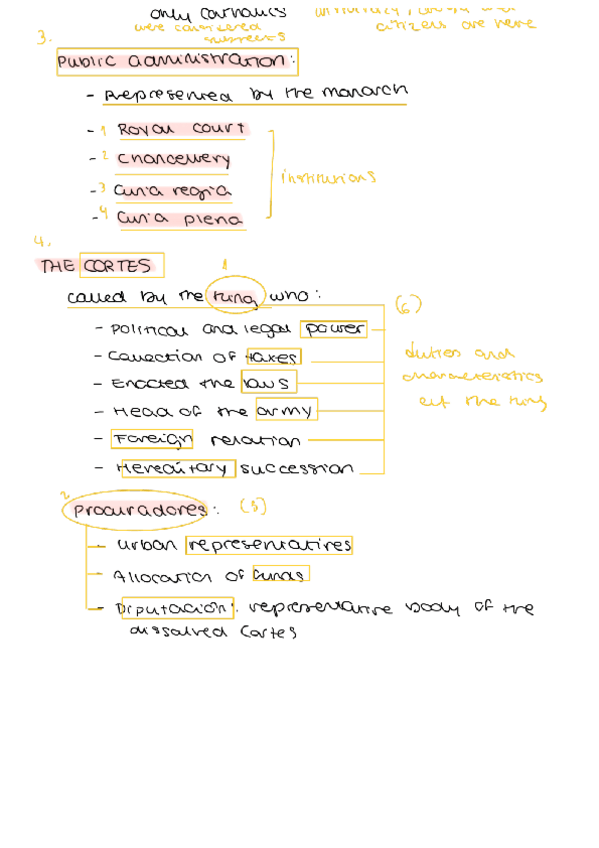 only catholics
were considered
subjects
citizens are here
3.
Public administration:
- Represented by the monarch
- 1 Royal court
- 2 Chancellery
- 3 Curia regia
- 4 Curia plena
institutions
4.
THE CORTES
1
called by the king who:
(6)
- Political and legal power
- Collection of taxes
- Enacted the laws
- Head of the army
- Foreign relation
- Hereditary succession
duties and
characteristics
of the king
2
Procuradores: (3)
- Urban representatives
- Allocation of funds
- Diputación: representative body of the
dissolved Cortes